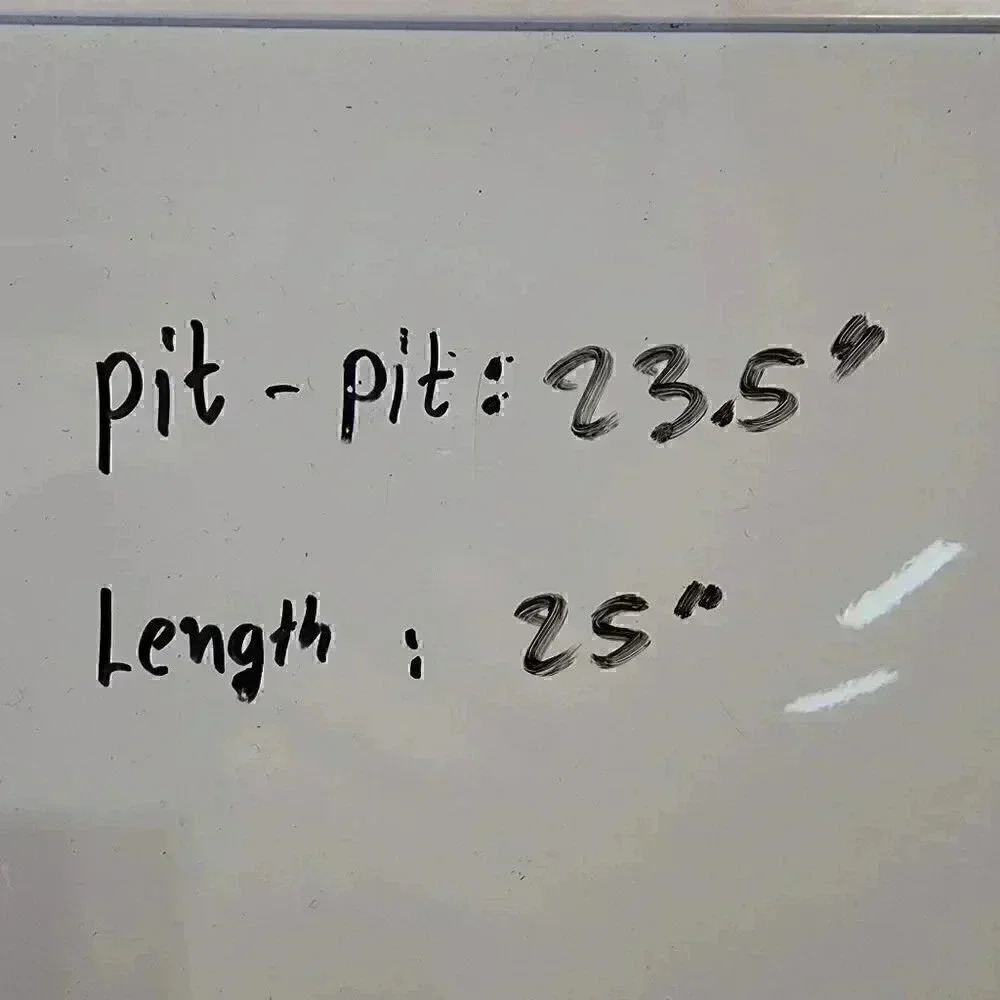 pit - pit: 23.5"
Length : 25"